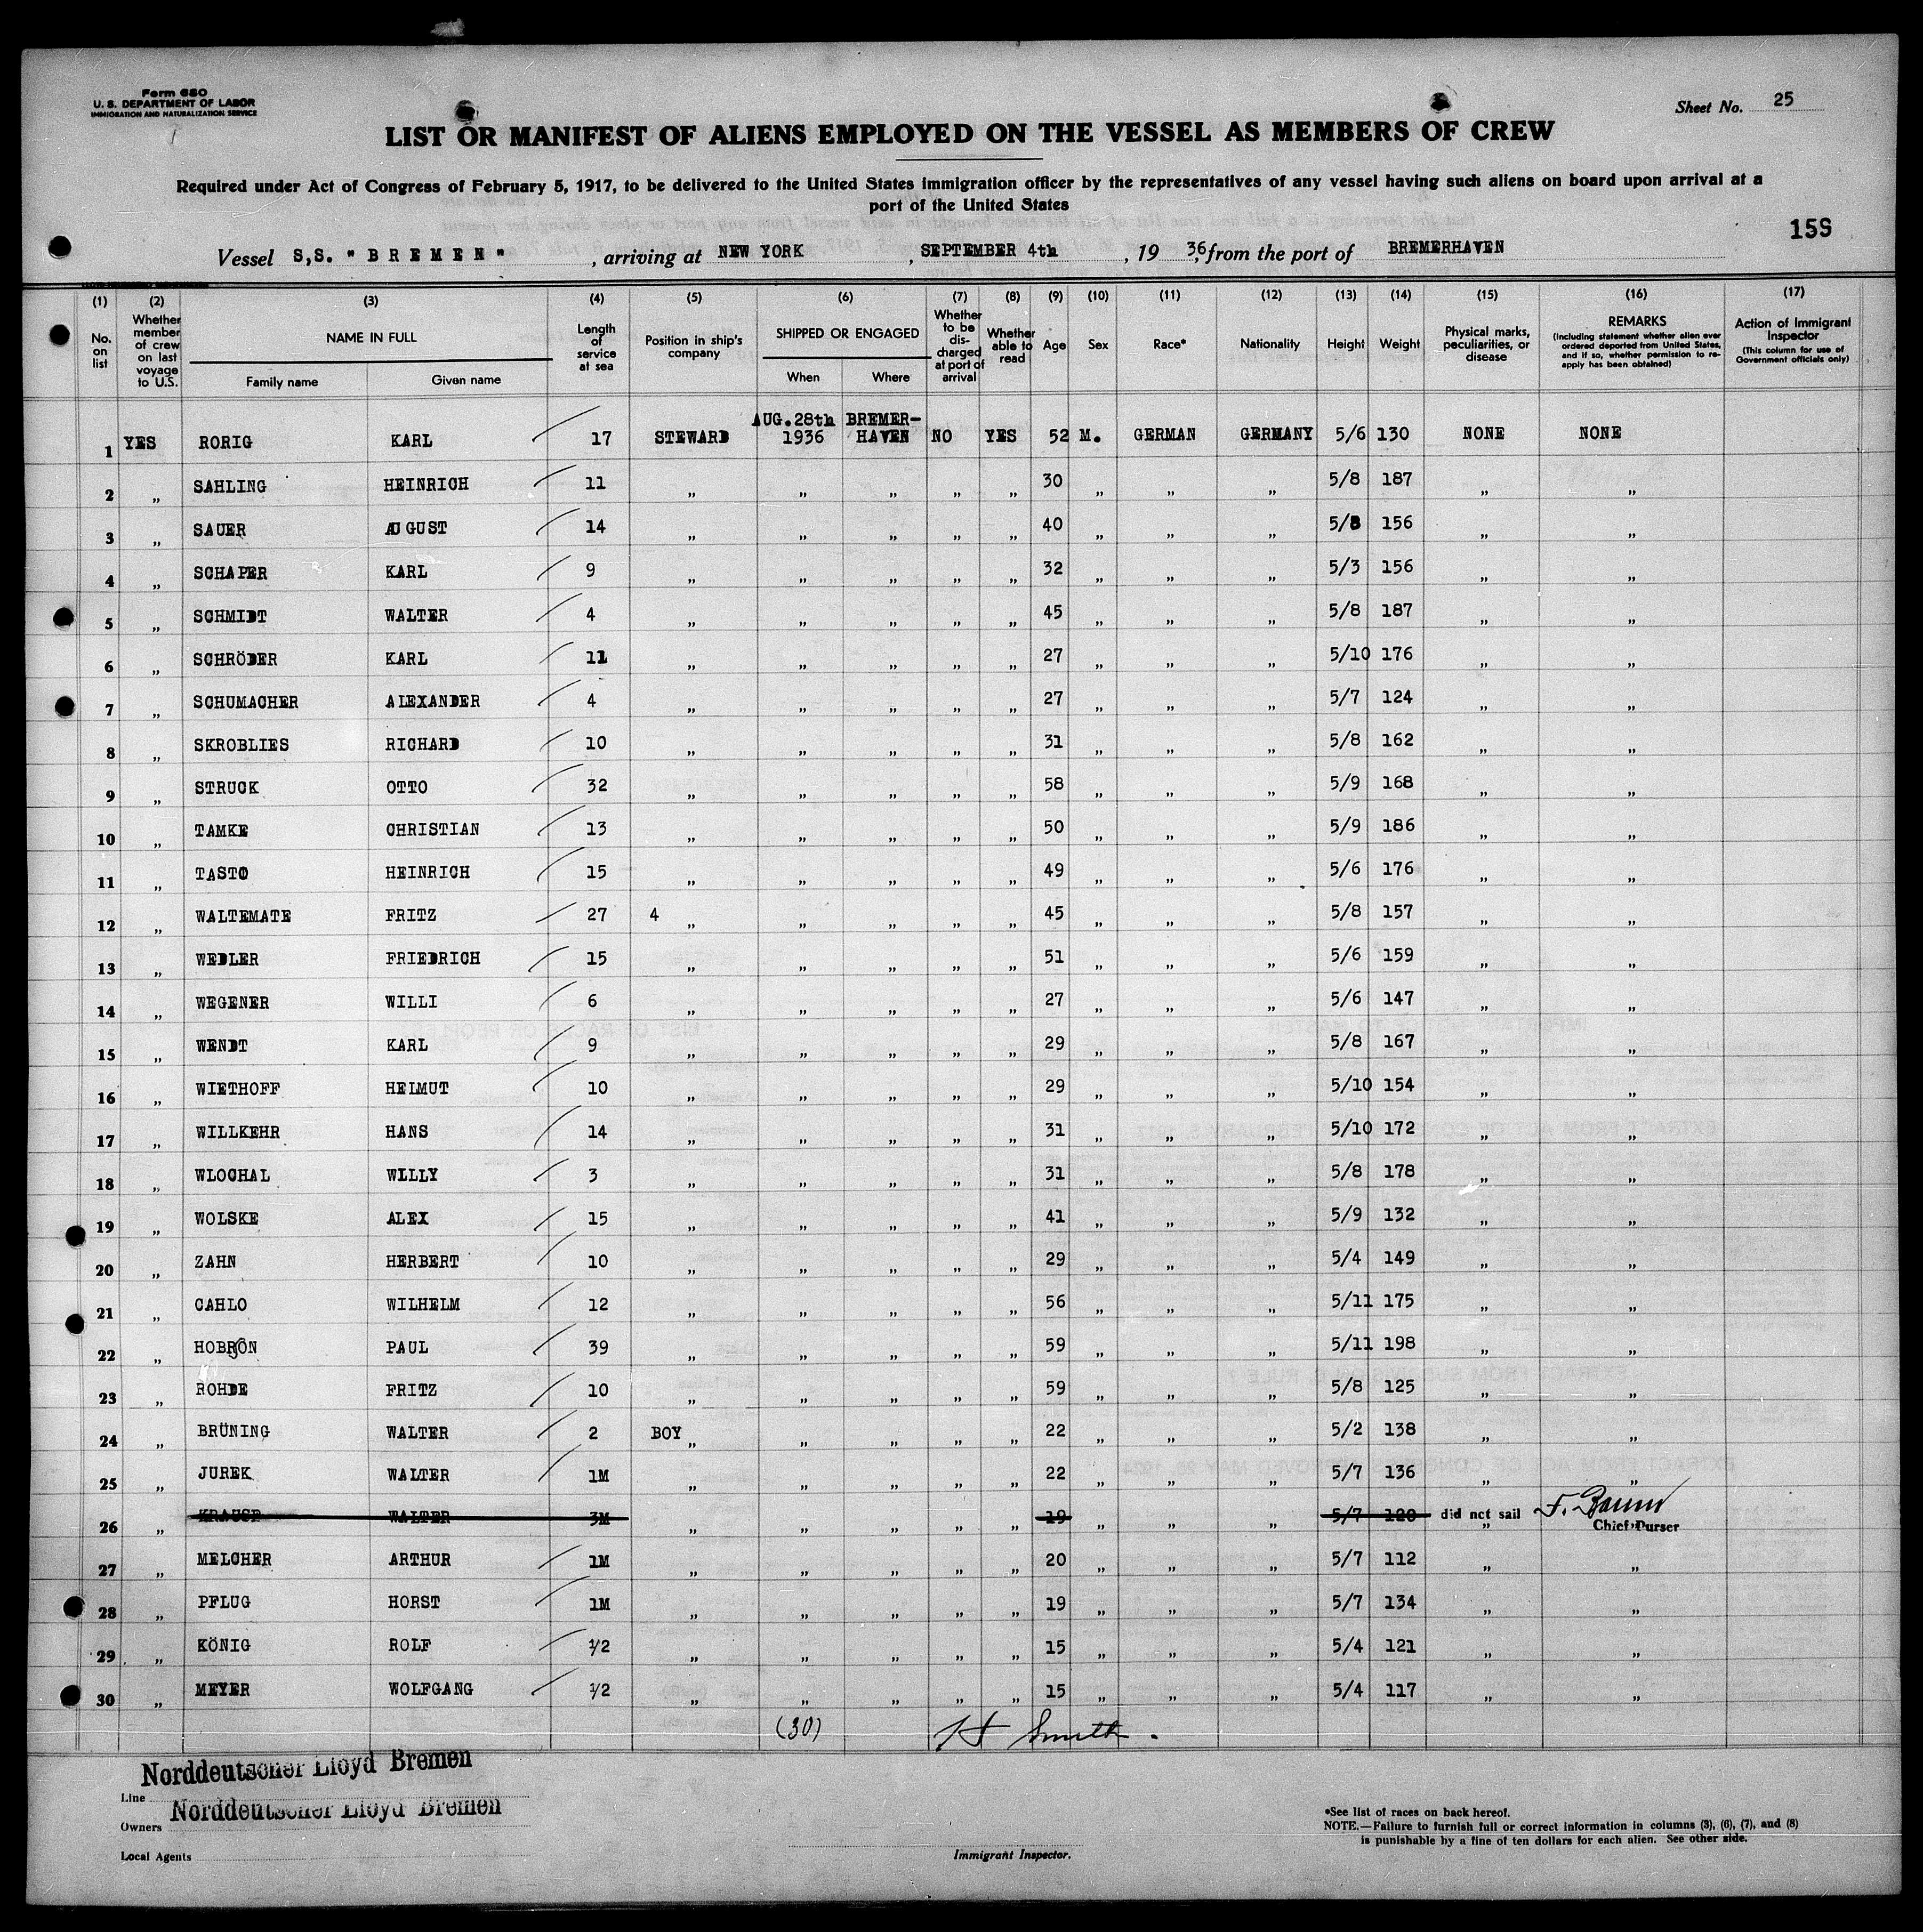 Form 680
U. S. DEPARTMENT OF LABOR
IMMIGRATION AND NATURALIZATION SERVICE
Sheet No. 25
LIST OR MANIFEST OF ALIENS EMPLOYED ON THE VESSEL AS MEMBERS OF CREW
Required under Act of Congress of February 5, 1917, to be delivered to the United States immigration officer by the representatives of any vessel having such aliens on board upon arrival at a
port of the United States
15S
Vessel S,S. "BREMEN", arriving at NEW YORK, SEPTEMBER 4th, 19 36, from the port of BREMERHAVEN
(1) (2) (3) (4) (5) (6) (7) (8) (9) (10) (11) (12) (13) (14) (15) (16) (17)
No. on list Whether member of crew on last voyage to U.S. NAME IN FULL Family name Given name Length of service at sea Position in ship's company SHIPPED OR ENGAGED When Where Whether to be discharged at port of arrival Whether able to read Age Sex Race* Nationality Height Weight Physical marks, peculiarities, or disease REMARKS (Including statement whether alien ever ordered deported from United States, and if so, whether permission to reapply has been obtained) Action of Immigrant Inspector (This column for use of Government officials only)
1 YES RORIG KARL 17 STEWARD AUG.28th 1936 BREMER-HAVEN NO YES 52 M. GERMAN GERMANY 5/6 130 NONE NONE
2 „ SAHLING HEINRICH 11 „ „ „ „ „ 30 „ „ „ 5/8 187 „ „
3 „ SAUER AUGUST 14 „ „ „ „ „ 40 „ „ „ 5/8 156 „ „
4 „ SCHAPER KARL 9 „ „ „ „ „ 32 „ „ „ 5/3 156 „ „
5 „ SCHMIDT WALTER 4 „ „ „ „ „ 45 „ „ „ 5/8 187 „ „
6 „ SCHRÖDER KARL 11 „ „ „ „ „ 27 „ „ „ 5/10 176 „ „
7 „ SCHUMACHER ALEXANDER 4 „ „ „ „ „ 27 „ „ „ 5/7 124 „ „
8 „ SKROBLIES RICHARD 10 „ „ „ „ „ 31 „ „ „ 5/8 162 „ „
9 „ STRUCK OTTO 32 „ „ „ „ „ 58 „ „ „ 5/9 168 „ „
10 „ TAMKE CHRISTIAN 13 „ „ „ „ „ 50 „ „ „ 5/9 186 „ „
11 „ TASTO HEINRICH 15 „ „ „ „ „ 49 „ „ „ 5/6 176 „ „
12 „ WALTEMATE FRITZ 27 4 „ „ „ „ „ 45 „ „ „ 5/8 157 „ „
13 „ WEDLER FRIEDRICH 15 „ „ „ „ „ 51 „ „ „ 5/6 159 „ „
14 „ WEGENER WILLI 6 „ „ „ „ „ 27 „ „ „ 5/6 147 „ „
15 „ WENDT KARL 9 „ „ „ „ „ 29 „ „ „ 5/8 167 „ „
16 „ WIETHOFF HELMUT 10 „ „ „ „ „ 29 „ „ „ 5/10 154 „ „
17 „ WILLKEHR HANS 14 „ „ „ „ „ 31 „ „ „ 5/10 172 „ „
18 „ WLOCHAL WILLY 3 „ „ „ „ „ 31 „ „ „ 5/8 178 „ „
19 „ WOLSKE ALEX 15 „ „ „ „ „ 41 „ „ „ 5/9 132 „ „
20 „ ZAHN HERBERT 10 „ „ „ „ „ 29 „ „ „ 5/4 149 „ „
21 „ CAHLO WILHELM 12 „ „ „ „ „ 56 „ „ „ 5/11 175 „ „
22 „ HOBRON PAUL 39 „ „ „ „ „ 59 „ „ „ 5/11 198 „ „
23 „ ROHDE FRITZ 10 „ „ „ „ „ 59 „ „ „ 5/8 125 „ „
24 „ BRÜNING WALTER 2 BOY „ „ „ „ „ 22 „ „ „ 5/2 138 „ „
25 „ JUREK WALTER 1M „ „ „ „ „ 22 „ „ „ 5/7 136 „ „
26 „ KRAUSE WALTER 3M „ „ „ „ „ 19 „ „ „ 5/7 120 did not sail „ Chief Purser
27 „ MELCHER ARTHUR 1M „ „ „ „ „ 20 „ „ „ 5/7 112 „ „
28 „ PFLUG HORST 1M „ „ „ „ „ 19 „ „ „ 5/7 134 „ „
29 „ KÖNIG ROLF 1/2 „ „ „ „ „ 15 „ „ „ 5/4 121 „ „
30 „ MEYER WOLFGANG 1/2 „ „ „ „ „ 15 „ „ „ 5/4 117 „ „
(30) H Smith .
Line Norddeutscher Lloyd Bremen
Owners Norddeutscher Lloyd Bremen
Local Agents
Immigrant Inspector.
*See list of races on back hereof.
NOTE.—Failure to furnish full or correct information in columns (3), (6), (7), and (8)
is punishable by a fine of ten dollars for each alien. See other side.